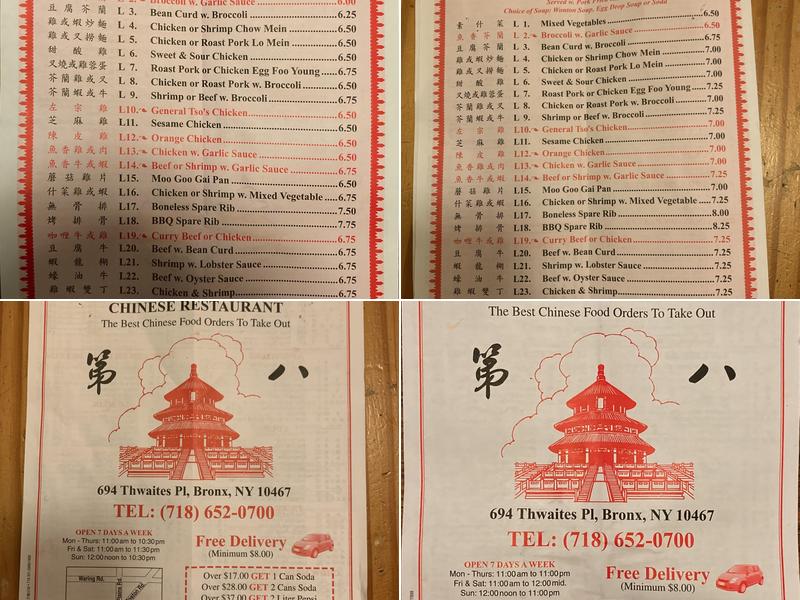 L 2. Broccoli w. Garlic Sauce 6.00
豆腐芥蘭 L 3. Bean Curd w. Broccoli 6.25
雞或蝦炒麵 L 4. Chicken or Shrimp Chow Mein 6.50
雞或叉撈麵 L 5. Chicken or Roast Pork Lo Mein 6.50
甜酸雞 L 6. Sweet & Sour Chicken 6.50
叉燒或雞蓉蛋 L 7. Roast Pork or Chicken Egg Foo Young 6.75
芥蘭雞或叉 L 8. Chicken or Roast Pork w. Broccoli 6.50
芥蘭蝦或牛 L 9. Shrimp or Beef w. Broccoli 6.75
左宗雞 L10. General Tso's Chicken 6.50
芝麻雞 L11. Sesame Chicken 6.50
陳皮雞 L12. Orange Chicken 6.50
魚香雞或肉 L13. Chicken w. Garlic Sauce 6.50
魚香牛或蝦 L14. Beef or Shrimp w. Garlic Sauce 6.75
蘑菇雞片 L15. Moo Goo Gai Pan 6.50
什菜雞或蝦 L16. Chicken or Shrimp w. Mixed Vegetable 6.75
無骨排 L17. Boneless Spare Rib 7.50
烤排骨 L18. BBQ Spare Rib 7.75
咖喱牛或雞 L19. Curry Beef or Chicken 6.75
豆腐牛 L20. Beef w. Bean Curd 6.75
蝦龍糊 L21. Shrimp w. Lobster Sauce 6.75
蠔油牛 L22. Beef w. Oyster Sauce 6.75
雞蝦雙丁 L23. Chicken & Shrimp 6.75
Choice of Soup: Wonton Soup, Egg Drop Soup or Soda
素什菜 L 1. Mixed Vegetables 6.50
魚香芥蘭 L 2. Broccoli w. Garlic Sauce 6.50
豆腐芥蘭 L 3. Bean Curd w. Broccoli 6.75
雞或蝦炒麵 L 4. Chicken or Shrimp Chow Mein 7.00
雞或叉撈麵 L 5. Chicken or Roast Pork Lo Mein 7.00
甜酸雞 L 6. Sweet & Sour Chicken 7.00
叉燒或雞蓉蛋 L 7. Roast Pork or Chicken Egg Foo Young 7.25
芥蘭雞或叉 L 8. Chicken or Roast Pork w. Broccoli 7.00
芥蘭蝦或牛 L 9. Shrimp or Beef w. Broccoli 7.25
左宗雞 L10. General Tso's Chicken 7.00
芝麻雞 L11. Sesame Chicken 7.00
陳皮雞 L12. Orange Chicken 7.00
魚香雞或肉 L13. Chicken w. Garlic Sauce 7.00
魚香牛或蝦 L14. Beef or Shrimp w. Garlic Sauce 7.25
蘑菇雞片 L15. Moo Goo Gai Pan 7.00
什菜雞或蝦 L16. Chicken or Shrimp w. Mixed Vegetable 7.25
無骨排 L17. Boneless Spare Rib 8.00
烤排骨 L18. BBQ Spare Rib 8.25
咖喱牛或雞 L19. Curry Beef or Chicken 7.25
豆腐牛 L20. Beef w. Bean Curd 7.25
蝦龍糊 L21. Shrimp w. Lobster Sauce 7.25
蠔油牛 L22. Beef w. Oyster Sauce 7.25
雞蝦雙丁 L23. Chicken & Shrimp 7.25
CHINESE RESTAURANT
The Best Chinese Food Orders To Take Out
第 八
694 Thwaites Pl, Bronx, NY 10467
TEL: (718) 652-0700
OPEN 7 DAYS A WEEK
Mon - Thurs: 11:00 am to 10:30 pm
Fri & Sat: 11:00 am to 11:30 pm
Sun: 12:00 noon to 10:30 pm
Free Delivery
(Minimum $8.00)
Waring Rd.
Over $17.00 GET 1 Can Soda
Over $28.00 GET 2 Cans Soda
Over $37.00 GET 2 Liter Pepsi
The Best Chinese Food Orders To Take Out
第 八
694 Thwaites Pl, Bronx, NY 10467
TEL: (718) 652-0700
OPEN 7 DAYS A WEEK
Mon - Thurs: 11:00 am to 11:00 pm
Fri & Sat: 11:00 am to 12:00 mid.
Sun: 12:00 noon to 11:00 pm
Free Delivery
(Minimum $8.00)